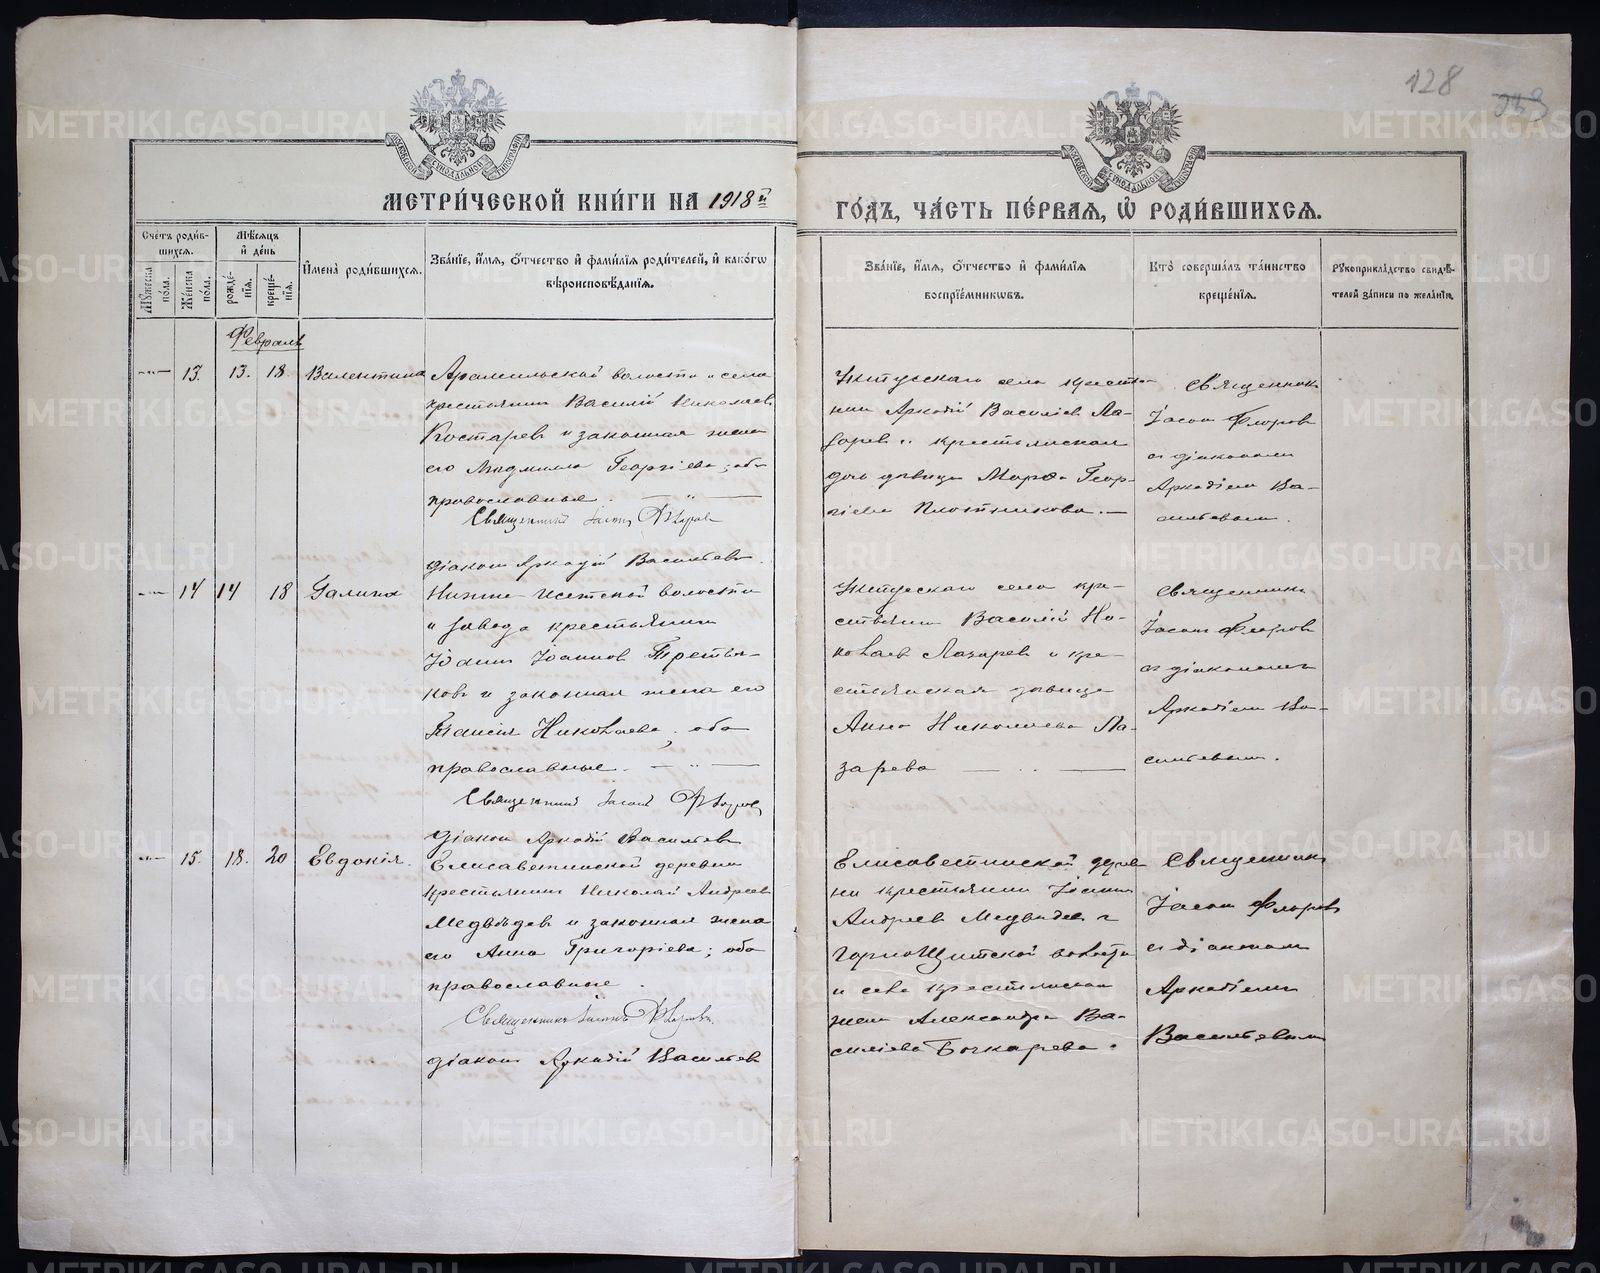 128
МЕТРИ́ЧЕСКОЙ КНИ́ГИ НА 1918й
ГО́ДЪ, ЧА́СТЬ ПЕ́РВАЯ, Ѡ РОДИ́ВШИХСЯ.
Сче́тъ роди́в-
шихся.
Мѣ́сяцъ
и҆ де́нь
Мꙋ́жеска по́ла.
Же́нска по́ла.
рожде́-
нїя.
креще́-
нїя.
И҆мена̀ роди́вшихся.
Зва́нїе, и҆́мя, ѻ҆́тчество и҆ фами́лїя роди́телей, и҆ како́гѡ
вѣроисповѣ́данїя.
Зва́нїе, и҆́мя, ѻ҆́тчество и҆ фами́лїя
воспрїе́мникѡвъ.
Кто̀ соверша́лъ та́инство
креще́нїя.
Рꙋкоприкла́дство свидѣ́-
телей за́писи по жела́нїю.
Февраль
13. 13. 18. Валентина
Арамильской волости и села
крестьянин Василій Николаев
Костарев и законная жена
его Людмила Георгіева; оба
православные.
Священникъ Іасонъ Флоров
діакон Аркадій Васильев.
Уктусскаго села крестья-
нин Аркадій Василіев Ла-
зарев и крестьянская
дочь девица Марфа Геор-
гіева Плотникова.
Священник
Іасон Флоров
с діаконом
Аркадіем Ва-
сильевым.
14 14 18 Галина
Нижне-Исетской волости
и завода крестьянин
Іоанн Іоаннов Третья-
ков и законная жена его
Таисія Николаева; оба
православные.
Священник Іасон Флоров
діакон Аркадій Васильев
Уктусскаго села кре-
стьянин Василій Ни-
колаев Лазарев и кре-
стьянская девица
Анна Николаева Ла-
зарева
Священник
Іасон Флоров
с діаконом
Аркадіем Ва-
сильевым.
15. 18. 20 Евдокія.
Елисаветинской деревни
крестьянин Николай Андреев
Медвѣдев и законная жена
его Анна Григоріева; оба
православные.
Священникъ Іасонъ Флоровъ.
діакон Аркадій Васильев
Елисаветинской дерев-
ни крестьянин Іоанн
Андреев Медведев и
Горнощитской волости
и села крестьянская
жена Александра Ва-
силіева Бочкарева.
Священник
Іасон Флоров
с діаконом
Аркадіем
Васильевым
METRIKI.GASO-URAL.RU